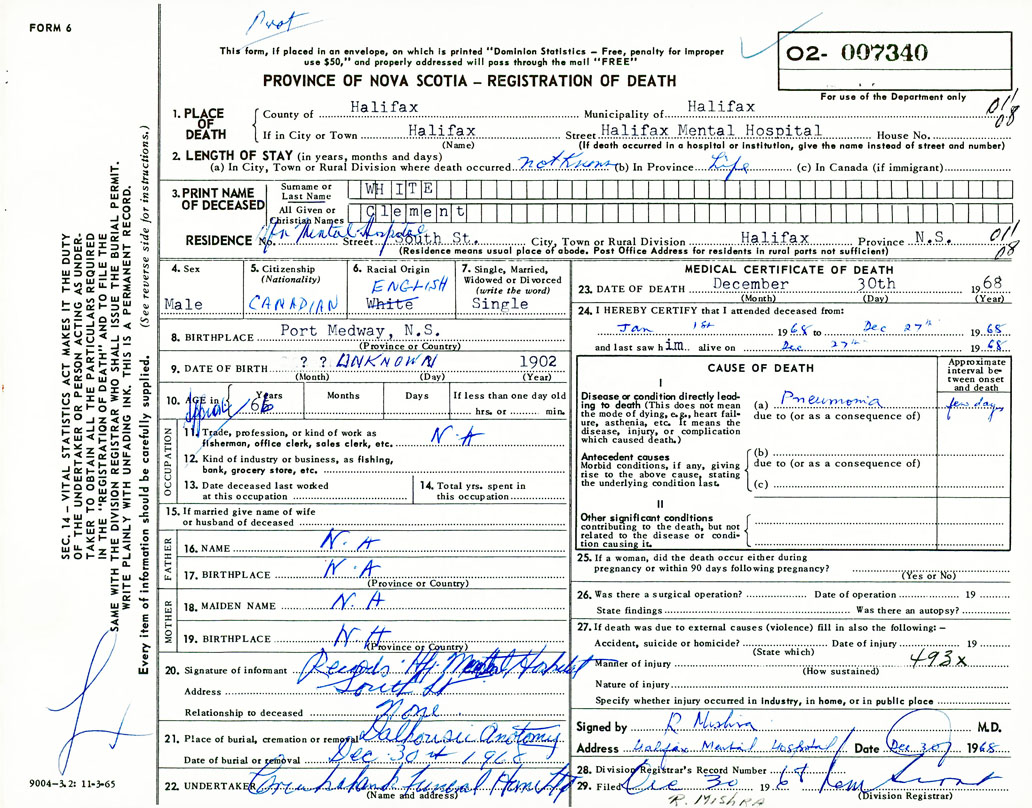 FORM 6
Prot
This form, if placed in an envelope, on which is printed "Dominion Statistics – Free, penalty for improper
use $50," and properly addressed will pass through the mail "FREE"
PROVINCE OF NOVA SCOTIA – REGISTRATION OF DEATH
O2- 007340
For use of the Department only
011
08
1. PLACE OF DEATH
County of Halifax Municipality of Halifax
If in City or Town Halifax Street Halifax Mental Hospital House No.
(Name) (If death occurred in a hospital or institution, give the name instead of street and number)
2. LENGTH OF STAY (in years, months and days)
(a) In City, Town or Rural Division where death occurred not Known (b) In Province Life (c) In Canada (if immigrant)
3. PRINT NAME OF DECEASED
Surname or Last Name WHITE
All Given or Christian Names Clement
RESIDENCE No. Hfx Mental Hospital Street South St. City, Town or Rural Division Halifax Province N.S. 011
08
(Residence means usual place of abode. Post Office Address for residents in rural parts not sufficient)
4. Sex
Male
5. Citizenship
(Nationality)
CANADIAN
6. Racial Origin
ENGLISH
White
7. Single, Married,
Widowed or Divorced
(write the word)
Single
8. BIRTHPLACE Port Medway, N.S.
(Province or Country)
9. DATE OF BIRTH ? ? UNKNOWN 1902
(Month) (Day) (Year)
10. AGE in Years 66 Months Days If less than one day old
hrs. or min.
OCCUPATION
11. Trade, profession, or kind of work as
fisherman, office clerk, sales clerk, etc. N.A
12. Kind of industry or business, as fishing,
bank, grocery store, etc.
13. Date deceased last worked
at this occupation
14. Total yrs. spent in
this occupation
15. If married give name of wife
or husband of deceased
FATHER
16. NAME N.A
17. BIRTHPLACE N.A
(Province or Country)
MOTHER
18. MAIDEN NAME N.A
19. BIRTHPLACE N A
(Province or Country)
20. Signature of informant Records Hfx Mental Hospital
Address South St
Relationship to deceased None
21. Place of burial, cremation or removal Dalhousie Anatomy
Date of burial or removal Dec 30th 1968
22. UNDERTAKER Cruikshank Funeral Home
(Name and address)
MEDICAL CERTIFICATE OF DEATH
23. DATE OF DEATH December 30th 1968
(Month) (Day) (Year)
24. I HEREBY CERTIFY that I attended deceased from:
Jan 1st 1968 to Dec 27th 1968
and last saw him alive on Dec 27th 1968
CAUSE OF DEATH
Approximate
interval be-
tween onset
and death
I
Disease or condition directly lead-
ing to death (This does not mean
the mode of dying, e.g., heart fail-
ure, asthenia, etc. It means the
disease, injury, or complication
which caused death.)
(a) Pneumonia few days
due to (or as a consequence of)
Antecedent causes
Morbid conditions, if any, giving
rise to the above cause, stating
the underlying condition last.
(b)
due to (or as a consequence of)
(c)
II
Other significant conditions
contributing to the death, but not
related to the disease or condi-
tion causing it.
25. If a woman, did the death occur either during
pregnancy or within 90 days following pregnancy?
(Yes or No)
26. Was there a surgical operation? Date of operation 19
State findings Was there an autopsy?
27. If death was due to external causes (violence) fill in also the following: –
Accident, suicide or homicide? Date of injury 19
(State which) 493x
Manner of injury
(How sustained)
Nature of injury
Specify whether injury occurred in industry, in home, or in public place
Signed by R Mishra M.D.
Address Halifax Mental Hospital Date Dec 30 1968
28. Division Registrar's Record Number
29. Filed Dec 30 1968
(Division Registrar)
R. MISHRA
SEC. 14 – VITAL STATISTICS ACT MAKES IT THE DUTY
OF THE UNDERTAKER OR PERSON ACTING AS UNDER-
TAKER TO OBTAIN ALL THE PARTICULARS REQUIRED
IN THE "REGISTRATION OF DEATH" AND TO FILE THE
SAME WITH THE DIVISION REGISTRAR WHO SHALL ISSUE THE BURIAL PERMIT.
WRITE PLAINLY WITH UNFADING INK. THIS IS A PERMANENT RECORD.
Every item of information should be carefully supplied. (See reverse side for instructions.)
9004-3.2: 11-3-65